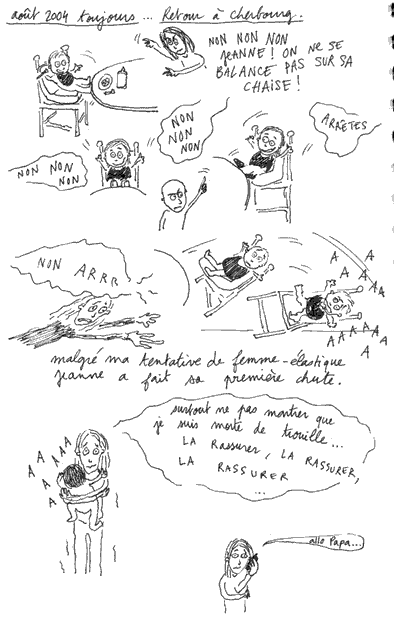 août 2004 toujours ... Retour à Cherbourg.
NON NON NON
JEANNE ! ON NE SE
BALANCE PAS SUR SA
CHAISE !
NON NON
NON
NON
NON
NON
ARRÊTES
NON ARRR
A A
A A
A A A
A A A A A
A
malgré ma tentative de femme-élastique
jeanne a fait sa première chute.
surtout ne pas montrer que
je suis morte de trouille...
LA Rassurer, LA RASSURER,
LA RASSURER
...
A A A A
A A
A
allo Papa...